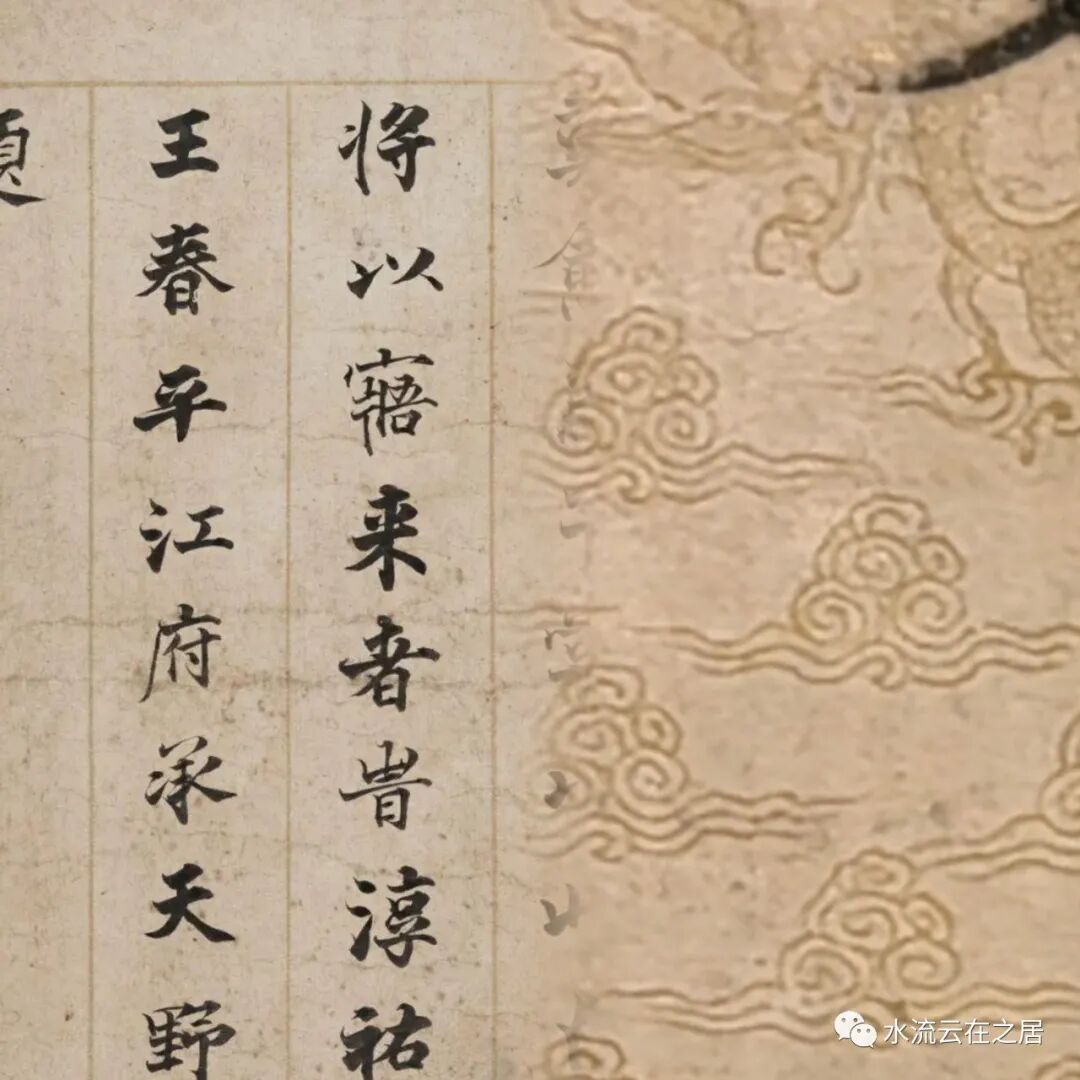 将以寤来者旹淳祐
王春平江府承天野
题
水流云在之居